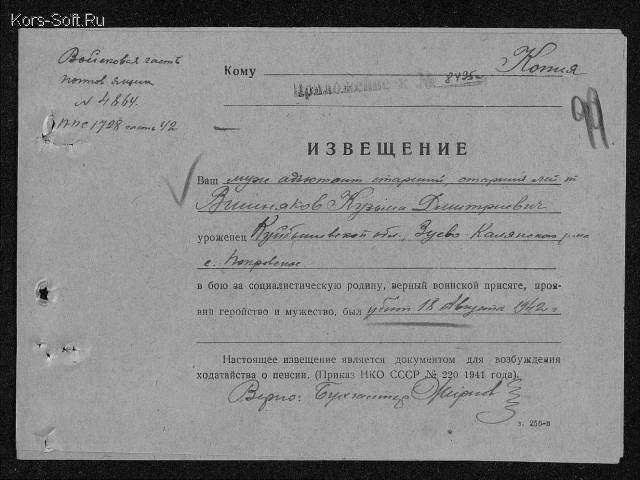 Kors-Soft.Ru
Войсковая часть
почтов ящик
№ 4864.
ППС 1728 часть 42
Кому
Копия
Приложение к № 8495с
99
ИЗВЕЩЕНИЕ
Ваш муж адъютант старший старший лей-т
Вишняков Кузьма Дмитриевич
уроженец Куйбышевской обл.,
с. Покровское
в бою за социалистическую родину, верный воинской присяге, проя-
вив геройство и мужество, был убит 18 августа 1942 г
Настоящее извещение является документом для возбуждения
ходатайства о пенсии. (Приказ НКО СССР № 220 1941 года).
Верно: Бухгалтер
з. 256-в